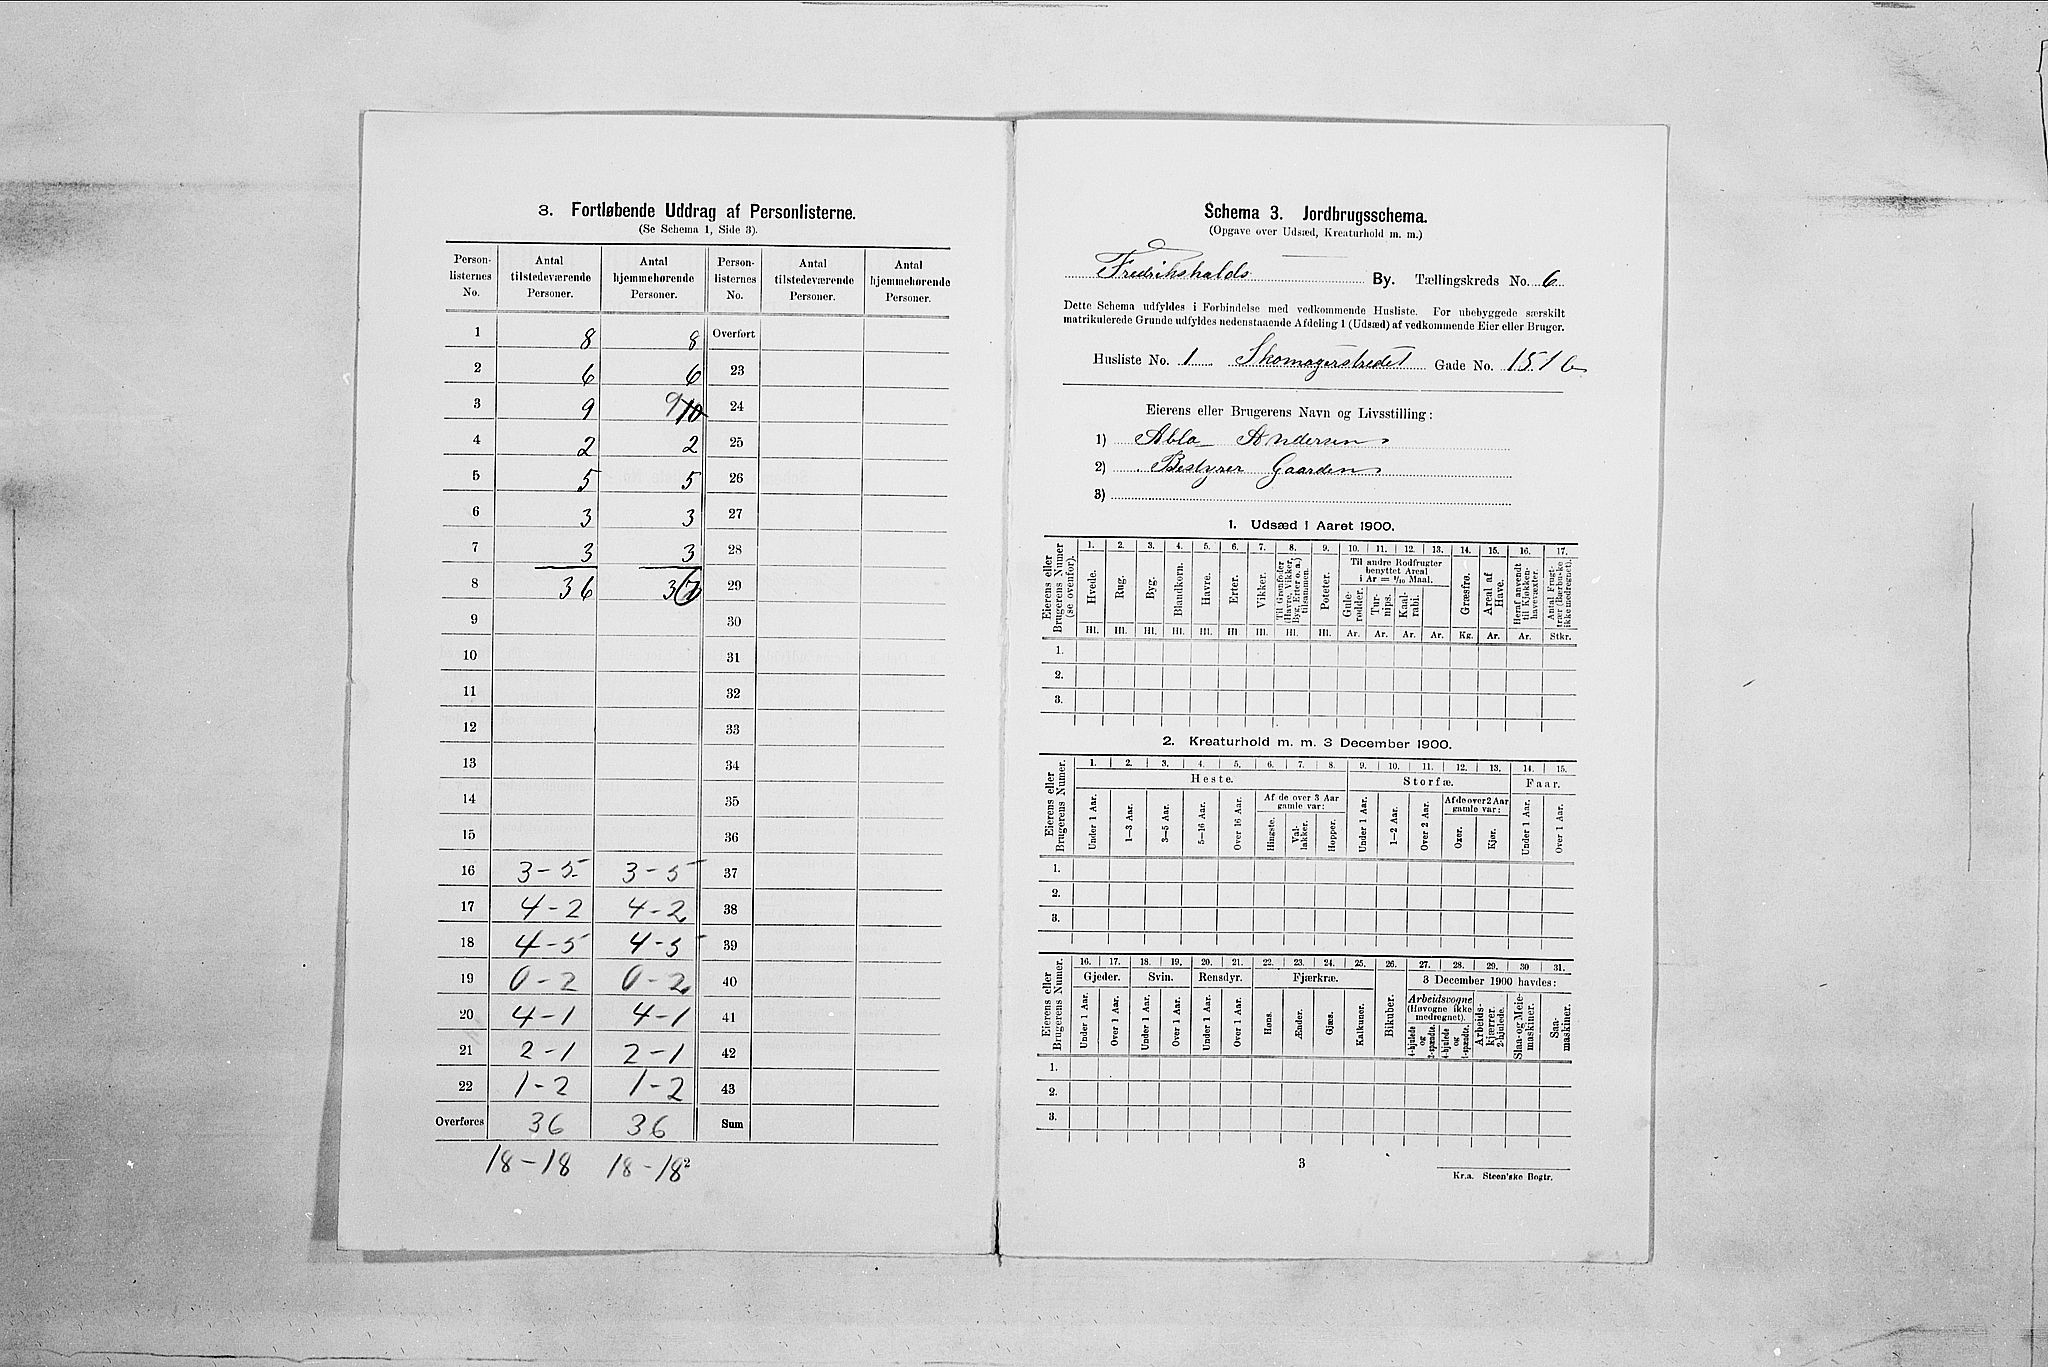 3. Fortløbende Uddrag af Personlisterne.
(Se Schema 1, Side 3).
Person-listernes No. | Antal tilstedeværende Personer. | Antal hjemmehørende Personer. | Person-listernes No. | Antal tilstedeværende Personer. | Antal hjemmehørende Personer.
1 8 8 Overført
2 6 6 23
3 9 9 10 24
4 2 2 25
5 5 5 26
6 3 3 27
7 3 3 28
8 36 36 29
9 30
10 31
11 32
12 33
13 34
14 35
15 36
16 3-5 3-5 37
17 4-2 4-2 38
18 4-5 4-5 39
19 0-2 0-2 40
20 4-1 4-1 41
21 2-1 2-1 42
22 1-2 1-2 43
Overføres 36 36 Sum
18-18 18-18
2
Schema 3. Jordbrugsschema.
(Opgave over Udsæd, Kreaturhold m. m.)
Fredrikshalds By. Tællingskreds No. 6
Dette Schema udfyldes i Forbindelse med vedkommende Husliste. For ubebyggede særskilt
matrikulerede Grunde udfyldes nedenstaaende Afdeling 1 (Udsæd) af vedkommende Eier eller Bruger.
Husliste No. 1 Skomagerstredet Gade No. 151 b
Eierens eller Brugerens Navn og Livsstilling:
1) Abla Andersen
2) Bestyrer Gaarden
3)
1. Udsæd i Aaret 1900.
Eierens eller Brugerens Numer (se ovenfor).
1. 2. 3. 4. 5. 6. 7. 8. 9. 10. 11. 12. 13. 14. 15. 16. 17.
Hvede. Rug. Byg. Blandkorn. Havre. Erter. Vikker. Til Grønfoder (Havre, Vikker, Byg, Erter o. a.) tilsammen. Poteter.
Til andre Rodfrugter benyttet Areal i Ar = 1/10 Maal.
Gule-rødder. Tur-nips. Kaal-rabi.
Græsfrø. Areal af Have. Heraf anvendt til Kjøkken-havevæxter. Antal Frugt-trær (Bærbuske ikke medregnet).
Hl. Hl. Hl. Hl. Hl. Hl Hl. Hl. Hl. Ar. Ar. Ar. Ar. Kg. Ar. Ar. Stkr.
1.
2.
3.
2. Kreaturhold m. m. 3 December 1900.
Eierens eller Brugerens Numer.
1. 2. 3. 4. 5. 6. 7. 8. 9. 10. 11. 12. 13. 14. 15.
Heste. Storfæ. Faar.
Under 1 Aar. 1—3 Aar. 3—5 Aar. 5—16 Aar. Over 16 Aar.
Af de over 3 Aar gamle var:
Hingste. Val-lakker. Hopper.
Under 1 Aar. 1—2 Aar. Over 2 Aar.
Af de over 2 Aar gamle var:
Oxer. Kjør.
Under 1 Aar. Over 1 Aar.
1.
2.
3.
Eierens eller Brugerens Numer.
16. 17. 18. 19. 20. 21. 22. 23. 24. 25. 26. 27. 28. 29. 30 31.
Gjeder. Svin. Rensdyr. Fjærkræ. Bikuber. 3 December 1900 havdes:
Under 1 Aar. Over 1 Aar. Under 1 Aar. Over 1 Aar. Under 1 Aar. Over 1 Aar.
Høns. Ænder. Gjæs. Kalkuner.
Arbeidsvogne (Høvogne ikke medregnet).
4-hjulede og 2-spændte. 4-hjulede og 1-spændte.
Arbeids-kjærrer, 2-hjulede. Slaa- og Meie-maskiner. Saa-maskiner.
1.
2.
3.
3
Kr.a. Steen'ske Bogtr.